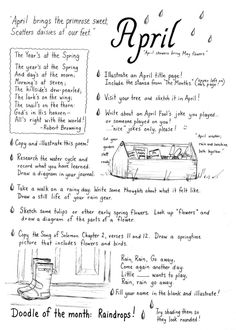 "April brings the primrose sweet,
Scatters daisies at our feet."
April
"April showers bring May flowers."
The Year's at the Spring
The year's at the Spring
And day's at the morn;
Morning's at seven;
The hillside's dew-pearled;
The lark's on the wing;
The snail's on the thorn:
God's in His heaven—
All's right with the world!
- Robert Browning
Illustrate an April title page!
Include the stanza from "The Months"
Visit your tree and sketch it in April!
Write about an April Fool's joke you played...
or someone played on you!
"nice" jokes only, please!
Copy and illustrate this poem!
Research the water cycle and
record what you have learned.
Draw a diagram in your journal.
Take a walk on a rainy day. Write some thoughts about what it felt like.
Draw a still life of your rain gear.
Sketch some tulips or other early spring flowers. Look up "flowers" and
draw a diagram of the parts of a flower.
Copy the Song of Solomon Chapter 2, verses 11 and 12. Draw a springtime
picture that includes flowers and birds.
Rain, Rain, Go away,
Come again another day.
Little ___ wants to play,
Rain, rain go away.
Fill your name in the blank and illustrate!
Doodle of the month: Raindrops!
Try shading them so
they look rounded